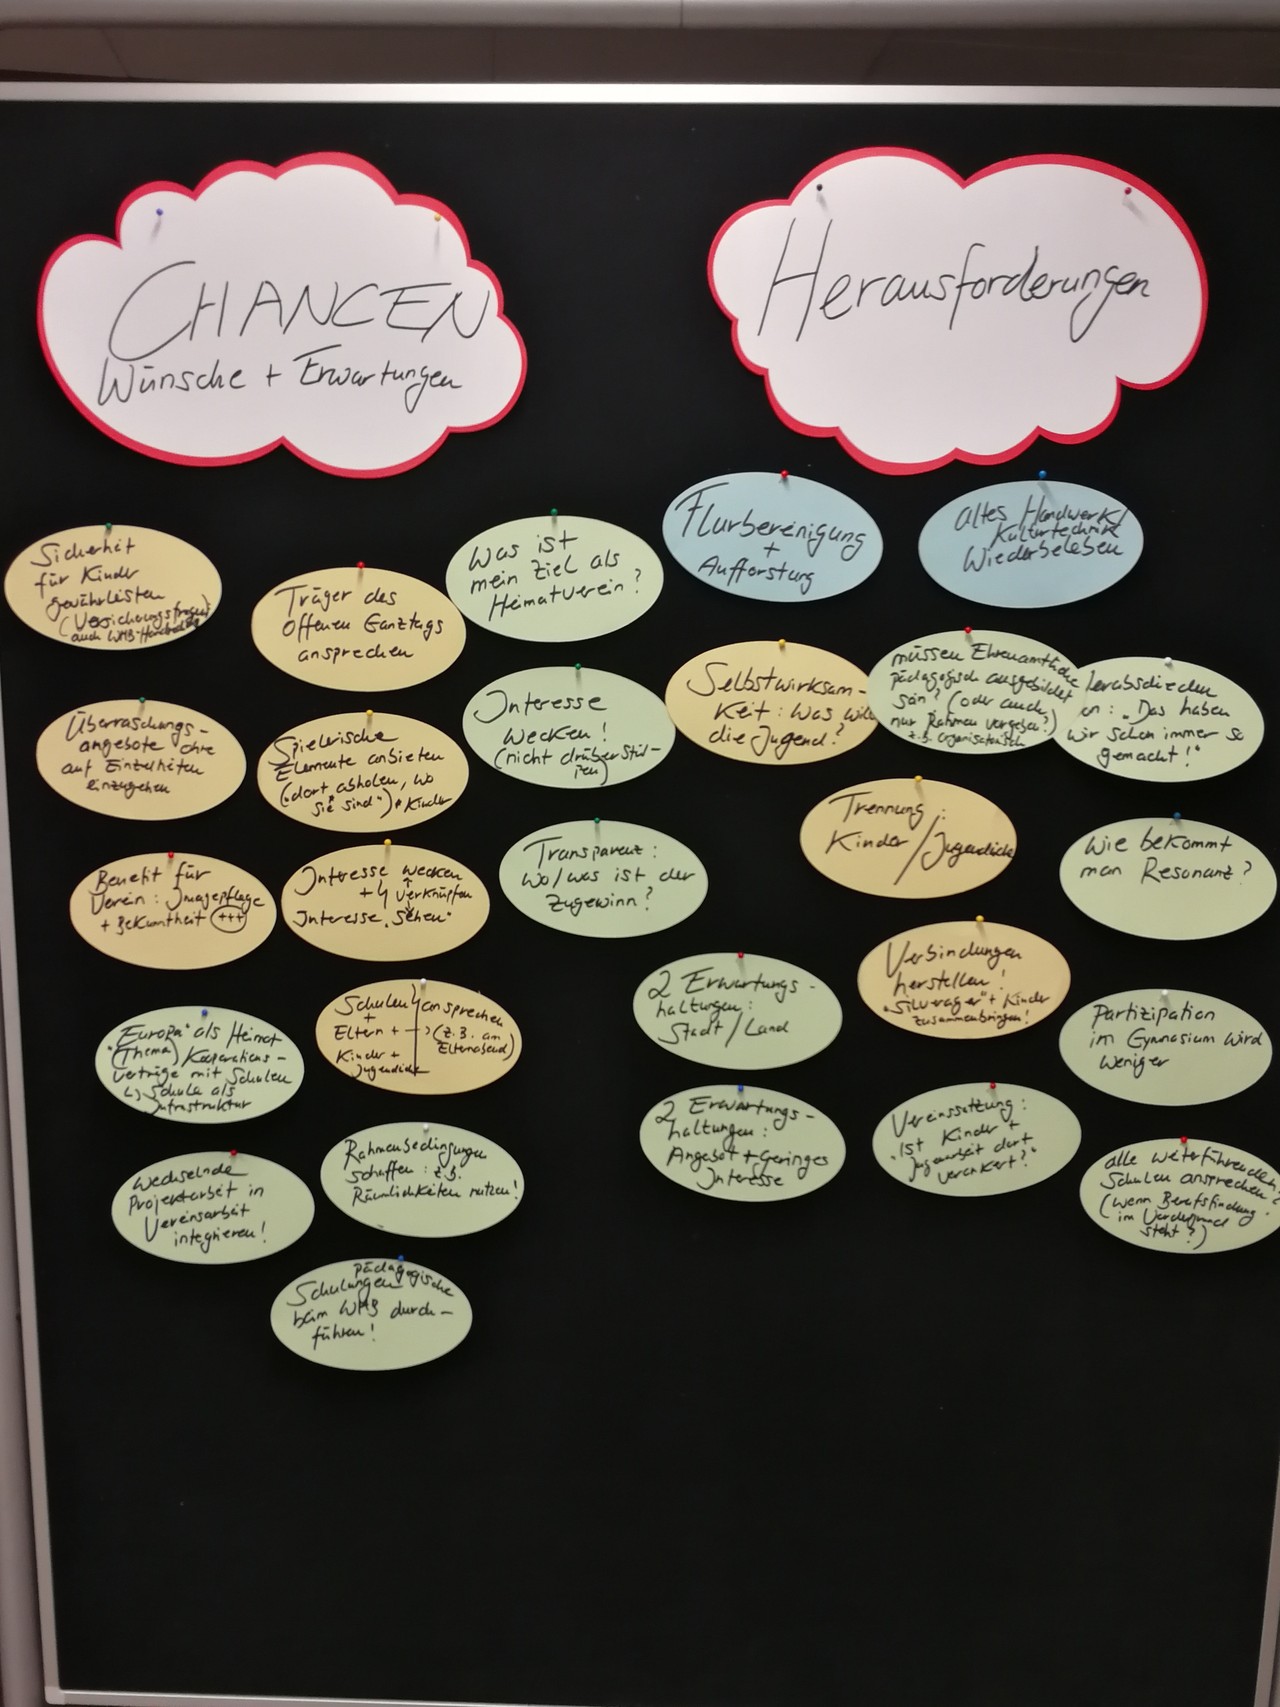 CHANCEN
Wünsche + Erwartungen
Sicherheit
für Kinder
gewährleisten
(Versicherungsfragen)
auch WHB-
Träger des
offenen Ganztags
ansprechen
Was ist
mein Ziel als
Heimatverein?
Überraschungs-
angebote ohne
auf Einzelheiten
einzugehen
Spielerische
Elemente anbieten
("dort abholen, wo
sie sind") Kinder
Interesse
wecken!
(nicht drüber stül-
pen)
Benefit für
Verein: Imagepflege
+ Bekanntheit +++
Interesse wecken
+ ↳ verknüpfen
Interesse "sehen"
Transparenz:
Wo/was ist der
Zugewinn?
"Europa" als Heimat
(Thema) Kooperations-
verträge mit Schulen
↳ Schule als
Infrastruktur
Schulen ansprechen
+
Eltern + → (z.B. am
Elternabend)
Kinder +
Jugendliche
Wechselnde
Projektarbeit in
Vereinsarbeit
integrieren!
Rahmenbedingungen
schaffen: z.B.
Räumlichkeiten nutzen!
pädagogische
Schulungen
beim WHB durch-
führen!
Herausforderungen
Flurbereinigung
+
Aufforstung
altes Handwerk/
Kulturtechnik
Wiederbeleben
Selbstwirksam-
keit: Was will
die Jugend?
müssen Ehrenamtliche
pädagogisch ausgebildet
sein? (oder auch
nur Rahmen vorgeben?)
z.B. organisatorisch
"Das haben
wir schon immer so
gemacht!"
Trennung:
Kinder / Jugendliche
Wie bekommt
man Resonanz?
Verbindungen
herstellen!
"Silverager" + Kinder
zusammenbringen!
2 Erwartungs-
haltungen:
Stadt / Land
Partizipation
im Gymnasium wird
weniger
2 Erwartungs-
haltungen:
Angebot + geringes
Interesse
Vereinssatzung:
"Ist Kinder +
Jugenarbeit dort
verankert?"
alle weiterführenden
Schulen ansprechen?
(wenn Berufsfindung
im Vordergrund
steht?)